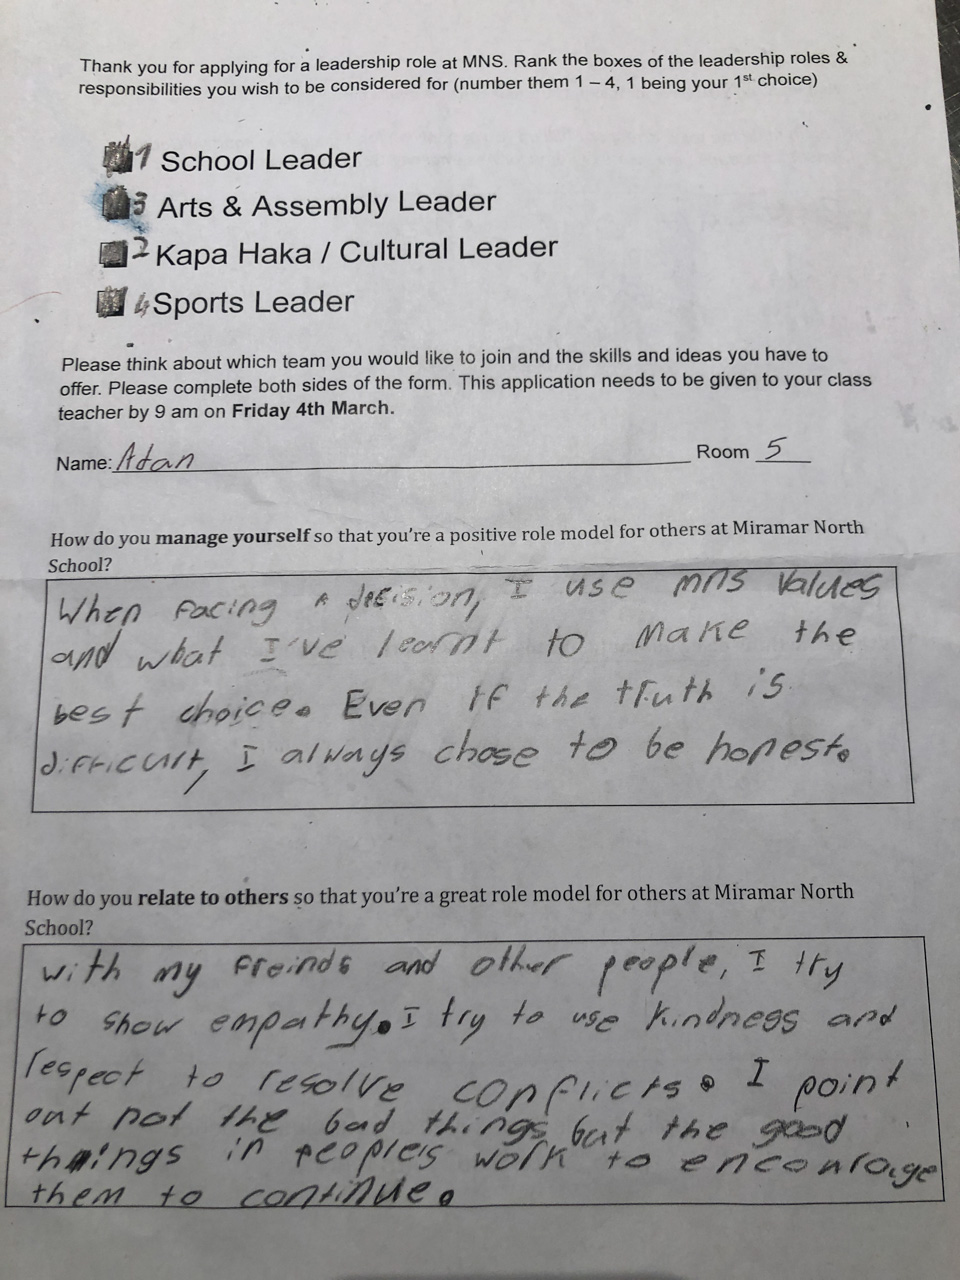 Thank you for applying for a leadership role at MNS. Rank the boxes of the leadership roles &
responsibilities you wish to be considered for (number them 1 – 4, 1 being your 1st choice)
1 School Leader
3 Arts & Assembly Leader
2 Kapa Haka / Cultural Leader
4 Sports Leader
Please think about which team you would like to join and the skills and ideas you have to
offer. Please complete both sides of the form. This application needs to be given to your class
teacher by 9 am on Friday 4th March.
Name: Adan Room 5
How do you manage yourself so that you're a positive role model for others at Miramar North
School?
When facing a decision, I use mns values
and what I've learnt to make the
best choice. Even if the truth is
difficult, I always chose to be honest.
How do you relate to others so that you're a great role model for others at Miramar North
School?
with my freinds and other people, I try
to show empathy. I try to use kindness and
respect to resolve conflicts. I point
out not the bad things but the good
things in peoples work to encourage
them to continue.